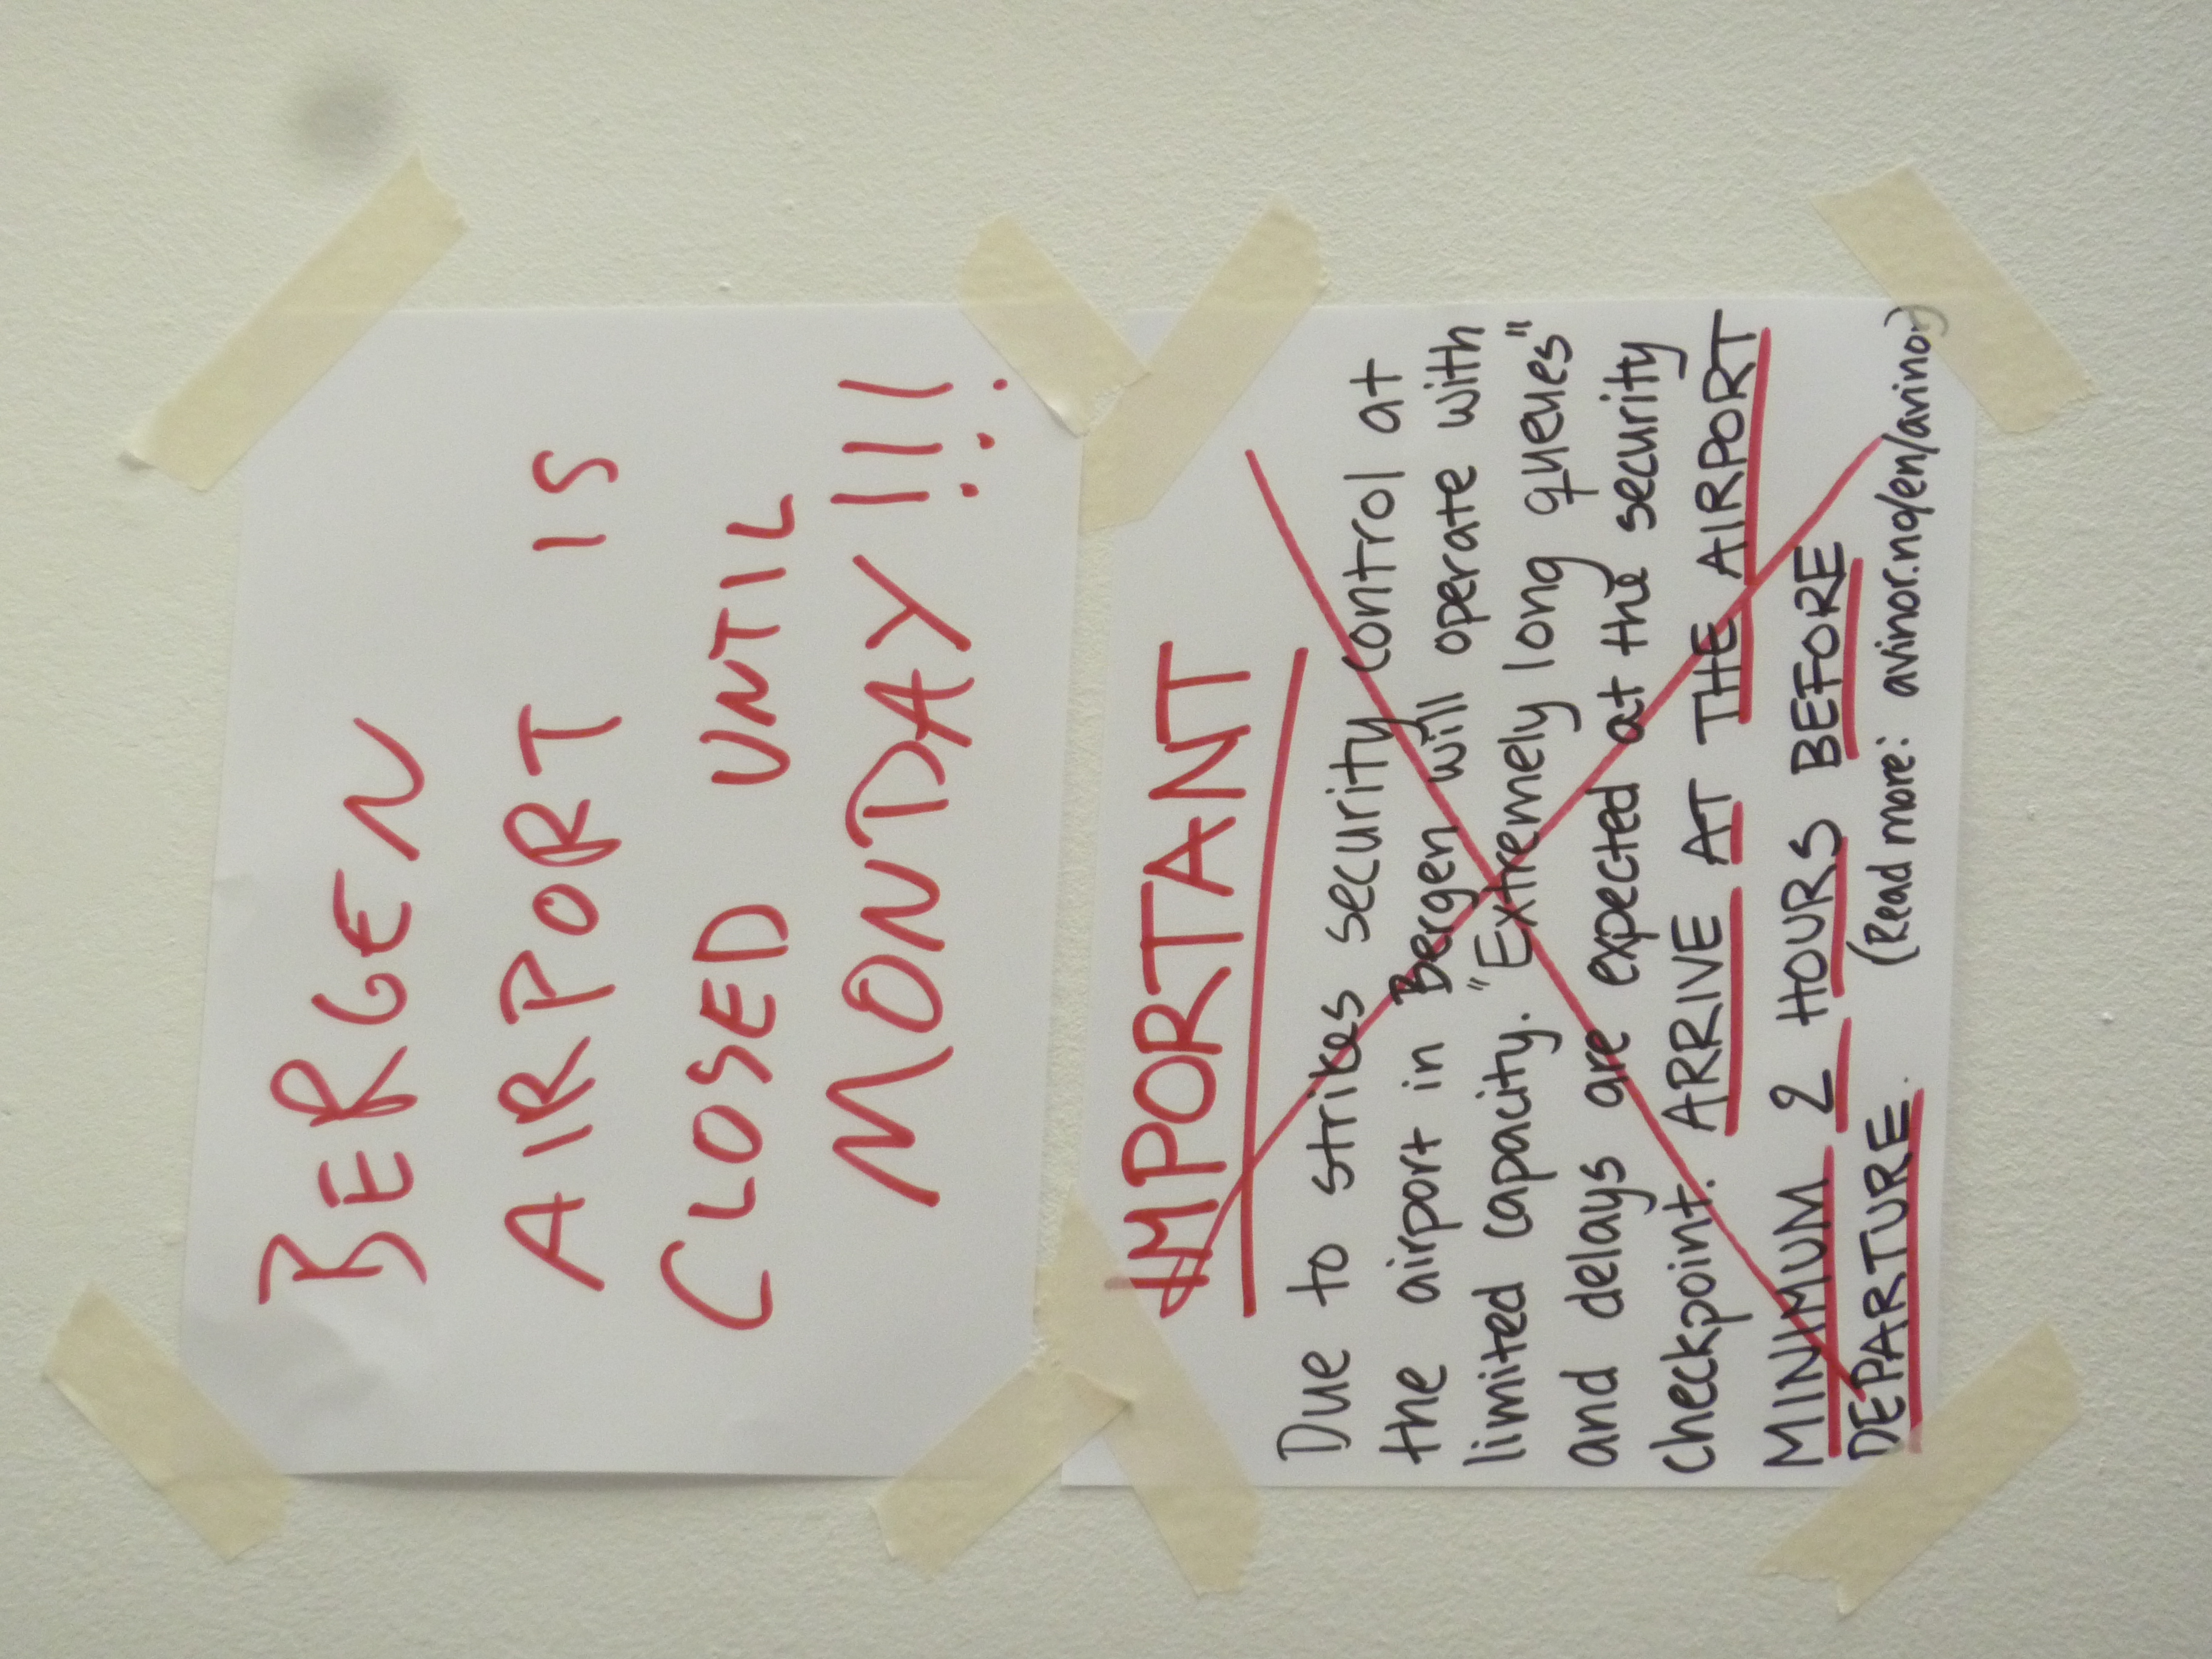 BERGEN
AIRPORT IS
CLOSED UNTIL
MONDAY!!!
IMPORTANT
Due to strikes security control at
the airport in Bergen will operate with
limited capacity. "Extremely long queues"
and delays are expected at the security
checkpoint. ARRIVE AT THE AIRPORT
MINIMUM 2 HOURS BEFORE
DEPARTURE.
(Read more: avinor.no/en/avinor)